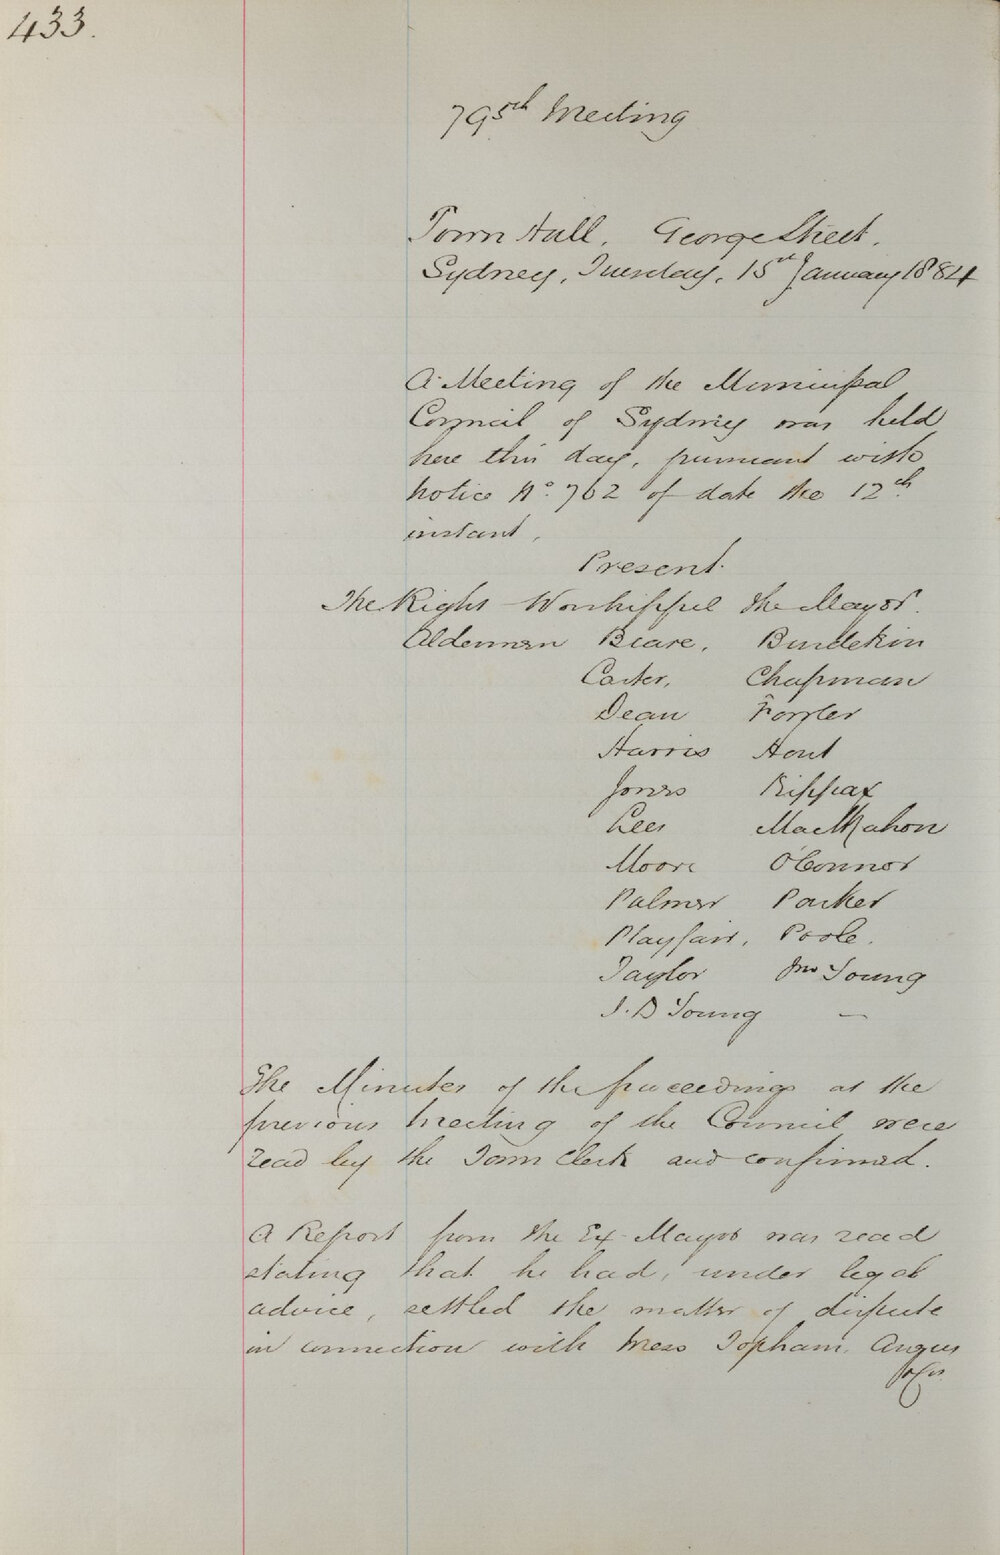 433.
795th Meeting
Town Hall, George Street,
Sydney, Tuesday, 15th January 1884
A Meeting of the Municipal
Council of Sydney was held
here this day, pursuant with
notice No. 762 of date the 12th
instant,
Present.
The Right Worshipful the Mayor.
Aldermen Beare, Burdekin
Carter, Chapman
Dean Fowler
Harris Hout
Jones Kippax
Lees MacMahon
Moore O'Connor
Palmer Parker
Playfair, Poole,
Taylor Jno Young
J. D Young —
The Minutes of the proceedings at the
previous meeting of the Council were
read by the Town Clerk and confirmed.
A Report from the Ex-Mayor was read
stating that he had, under legal
advice, settled the matter of dispute
in connection with Mess Topham, Angus
&Co.